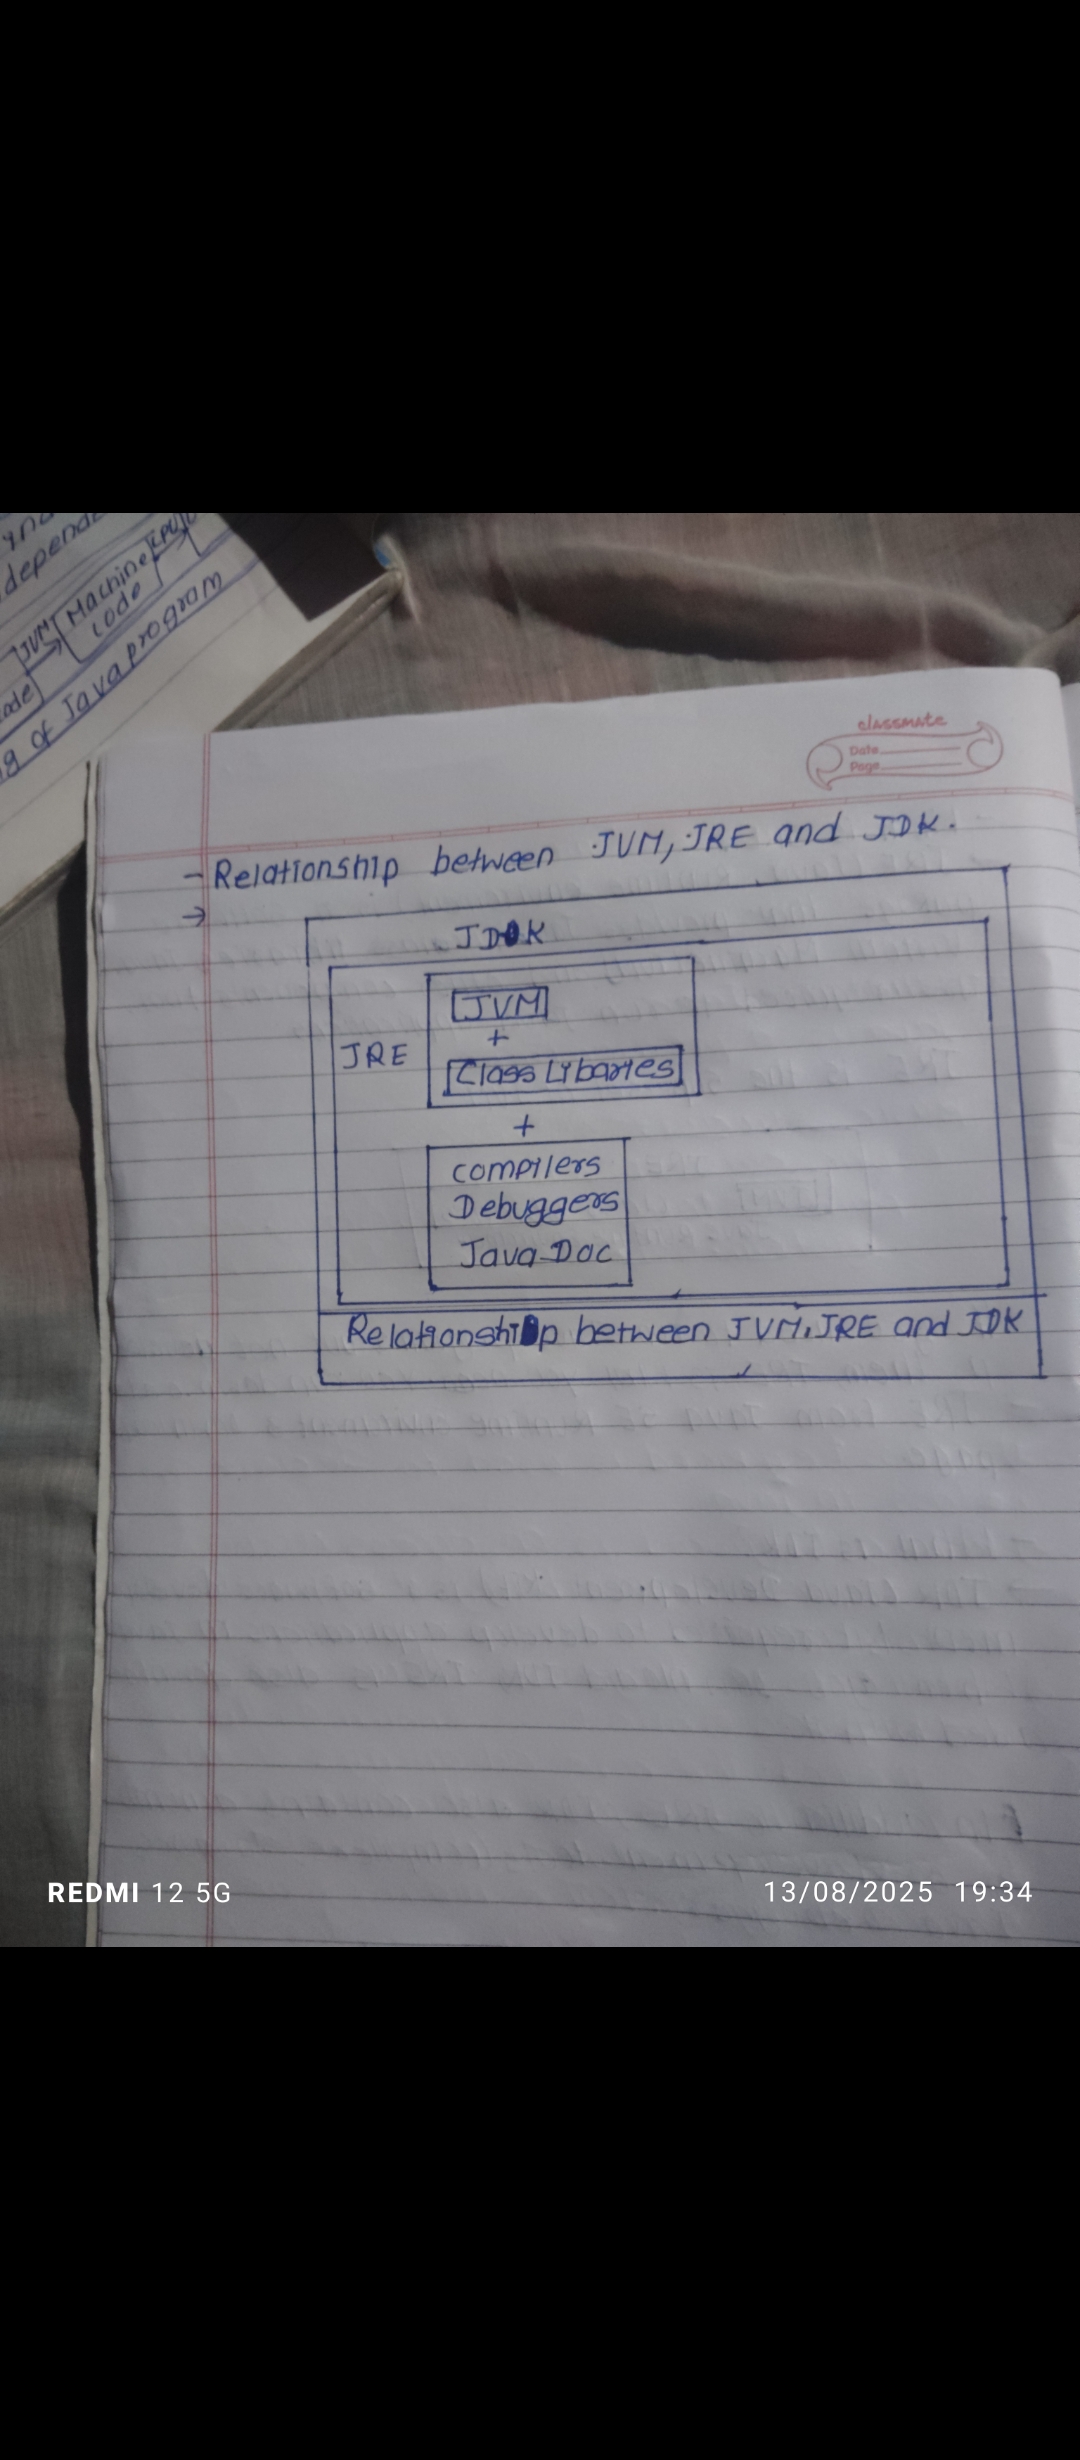 depend
JVM
Machine
code
CPU
ode
g of Java program
classmate
Date
Page
- Relationship between JVM, JRE and JDK.
→
JDK
JVM
+
JRE
Class Libaries
+
compilers
Debuggers
Java Doc
Relationship between JVM, JRE and JDK
REDMI 12 5G
13/08/2025 19:34